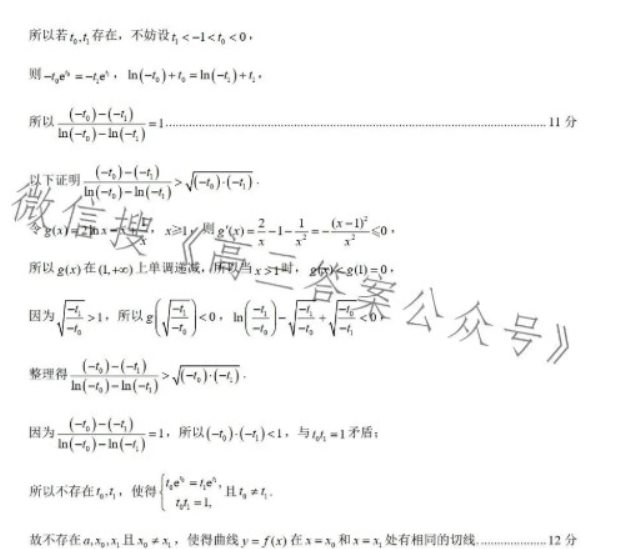 所以若t₀,t₁存在，不妨设t₁<-1<t₀<0，
则-t₀e^{t₀}=-t₁e^{t₁}，ln(-t₀)+t₀=ln(-t₁)+t₁，
所以\frac{(-t₀)-(-t₁)}{ln(-t₀)-ln(-t₁)}=1 11分
以下证明\frac{(-t₀)-(-t₁)}{ln(-t₀)-ln(-t₁)}>\sqrt{(-t₀)·(-t₁)}.
令g(x)=2ln x-x+\frac{1}{x}，x≥1，则g′(x)=\frac{2}{x}-1-\frac{1}{x²}=-\frac{(x-1)²}{x²}≤0，
所以g(x)在(1,+∞)上单调递减，所以当x>1时，g(x)<g(1)=0，
因为\sqrt{\frac{-t₁}{-t₀}}>1，所以g(\sqrt{\frac{-t₁}{-t₀}})<0，ln(\frac{-t₁}{-t₀})-\sqrt{\frac{-t₁}{-t₀}}+\sqrt{\frac{-t₀}{-t₁}}<0，
整理得\frac{(-t₀)-(-t₁)}{ln(-t₀)-ln(-t₁)}>\sqrt{(-t₀)·(-t₁)}.
因为\frac{(-t₀)-(-t₁)}{ln(-t₀)-ln(-t₁)}=1，所以(-t₀)·(-t₁)<1，与t₀t₁=1矛盾；
所以不存在t₀,t₁，使得\begin{cases}t₀e^{t₀}=t₁e^{t₁},\\t₀t₁=1,\end{cases}且t₀≠t₁.
故不存在a,x₀,x₁且x₀≠x₁，使得曲线y=f(x)在x=x₀和x=x₁处有相同的切线. 12分
微信搜《高三答案公众号》